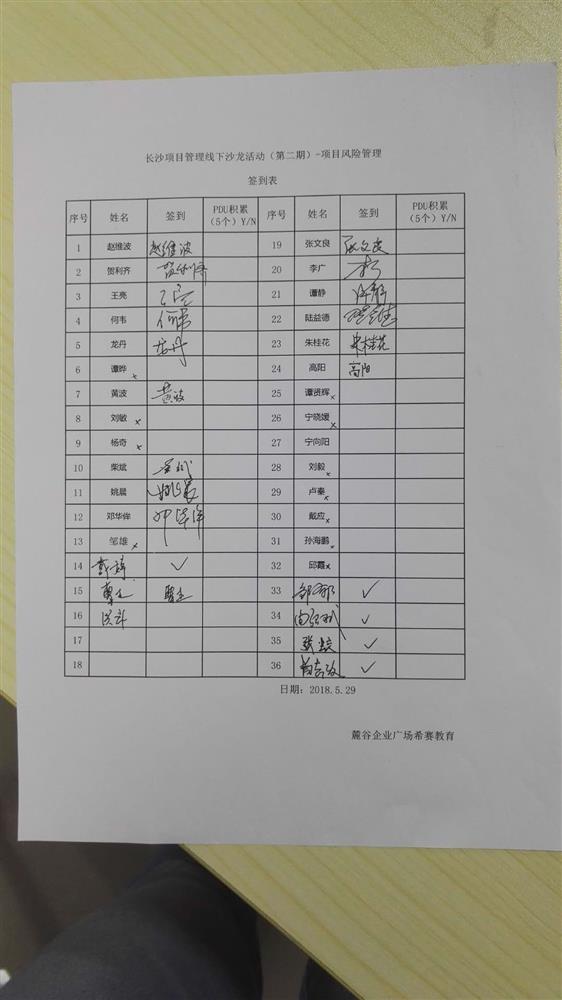 长沙项目管理线下沙龙活动（第二期）-项目风险管理
签到表
序号 姓名 签到 PDU积累（5个）Y/N 序号 姓名 签到 PDU积累（5个）Y/N
1 赵维波 赵维波 19 张文良 张文良
2 贺利齐 贺利齐 20 李广
3 王亮 21 谭静
4 何韦 何韦 22 陆益德
5 龙丹 龙丹 23 朱桂花 朱桂花
6 谭晔 x 24 高阳 高阳
7 黄波 黄波 25 谭贤辉 x
8 刘敏 x 26 宁晓媛 x
9 杨奇 x 27 宁向阳
10 柴斌 28 刘毅 x
11 姚晨 姚晨 29 卢秦 x
12 邓华锋 30 戴应 x
13 邹雄 x 31 孙海鹏 x
14 ✓ 32 邱霞 x
15 33 ✓
16 34 ✓
17 35 ✓
18 36 ✓
日期：2018.5.29
麓谷企业广场希赛教育